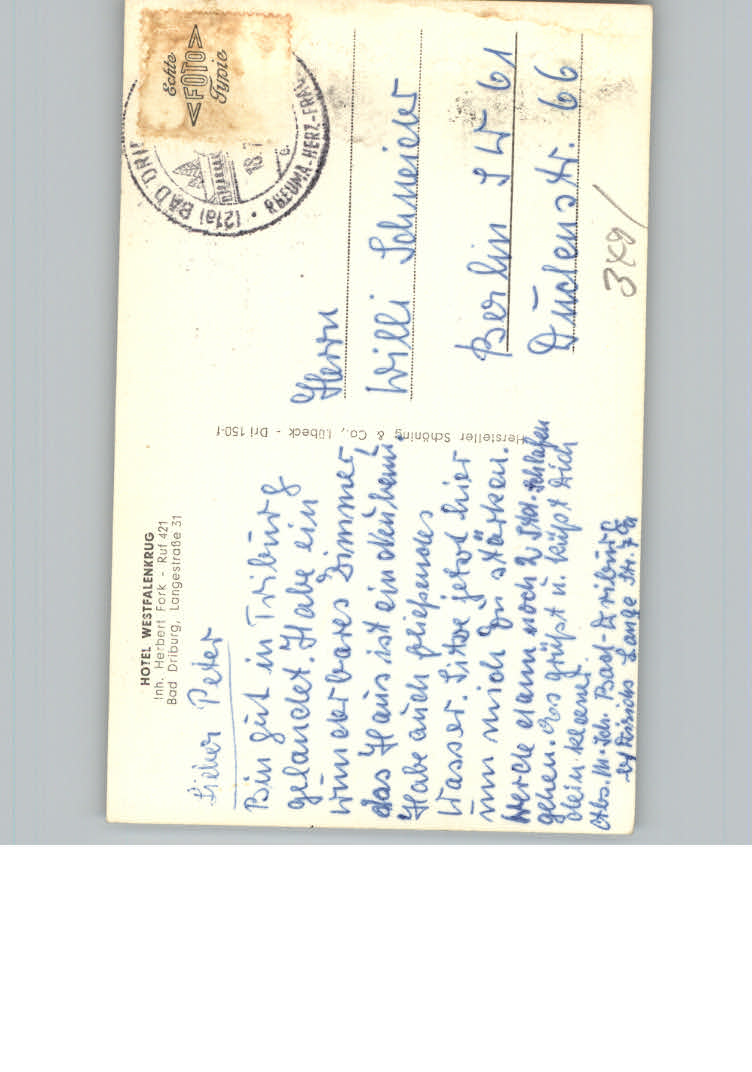 HOTEL WESTFALENKRUG
Inh. Herbert Fork - Ruf 421
Bad Driburg, Langestraße 31
Lieber Peter
Bin gut in Driburg
gelandet. Habe ein
wunderbares Zimmer,
das Haus ist ein
Habe auch fließendes
Wasser. Sitze jetzt hier
um mich zu stärken.
Werde dann noch 2 Std. schlafen
gehen. Es grüßt u. küßt Dich
Dein kleener
Abs. M. Sch. Bad-Driburg
Lange Str. 79
Hersteller Schöning & Co., Lübeck - Dri 150-f
Echte
<FOTO>
Typie
(21a) BAD DRI
RHEUMA-HERZ-FRAU
18.
Herrn
Willi Schneider
Berlin SW 61
Dudenstr. 66
349/